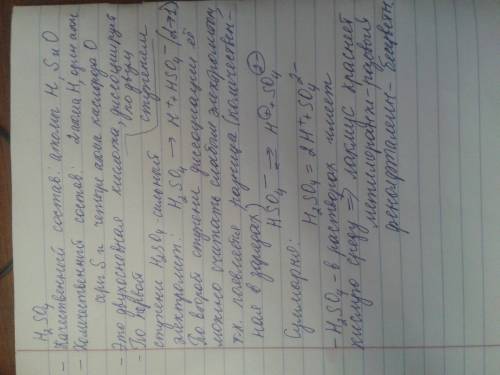 H₂SO₄
- Качественный состав: атомы H, S и O
- Количественный состав: 2 атома H, один атом
серы S и четыре атома кислорода O
- Это двухосновная кислота, диссоциирует
по двум
ступеням
- По первой
ступени H₂SO₄ - сильный
электролит: H₂SO₄ → H⁺ + HSO₄⁻
По второй ступени диссоциации её
можно считать слабым электролитом,
т.к. появляется разница (количествен-
ная в зарядах)
HSO₄⁻ ⇄ H⁺ + SO₄²⁻
Суммарно: H₂SO₄ = 2H⁺ + SO₄²⁻
- H₂SO₄ - в растворах имеет
кислую среду ⇒ лакмус краснеет
метилоранж - розовый
фенолфталеин -